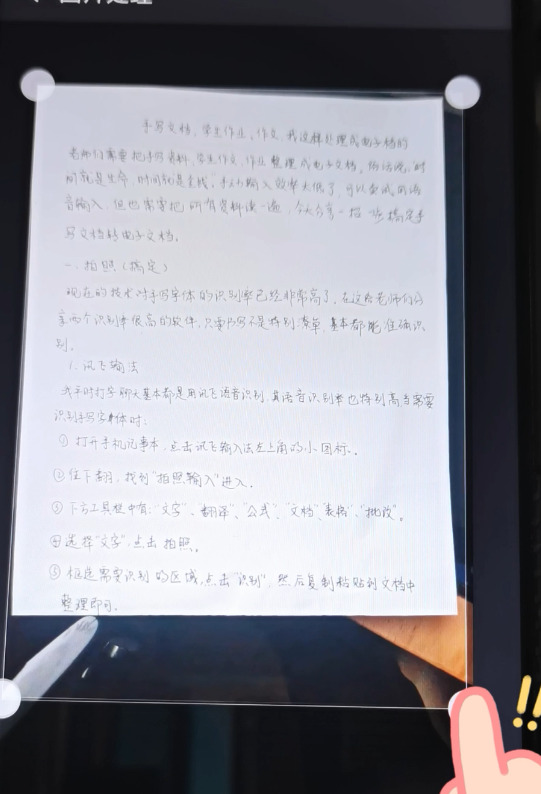 图片处理
手写文档、学生作业、作文,我这样处理成电子档的
老师们需要把手写资料,学生作文、作业整理成电子文档,俗话说,时
间就是生命,时间就是金钱,手动输入效率太低了,可以尝试用语
音输入,但也需要把所有资料读一遍,今天分享一招 搞定手
写文档转电子文档。
一、拍照(搞定)
现在的技术对手写字体的识别率已经非常高了,在这给老师们分
享两个识别率很高的软件,只要书写不是特别潦草,基本都能准确识
别。
1、讯飞输法
我平时打字聊天基本都是用讯飞语音识别,其语音识别率也特别高当需要
识别手写字体时:
① 打开手机记事本,点击讯飞输入法左上角的小图标。
② 往下翻,找到"拍照输入"进入。
③ 下方工具栏中有:"文字"、翻译"、"公式"、"文档"、表格"、"批改"。
④ 选择"文字",点击拍照。
⑤ 框选需要识别的区域,点击"识别",然后复制粘贴到文档中
整理即可。
!!